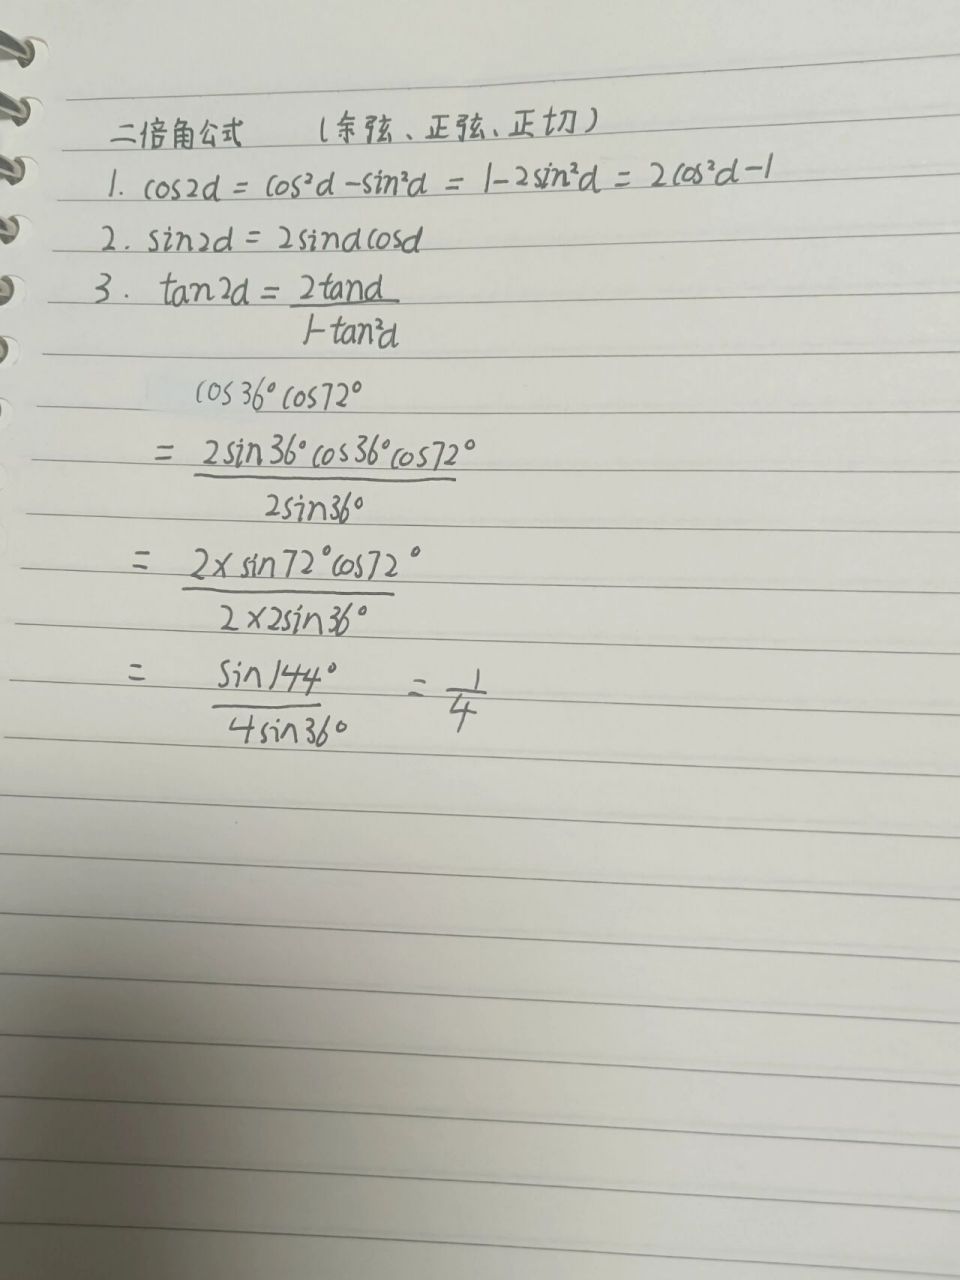 二倍角公式 (余弦、正弦、正切)
1. cos2d = cos²d - sin²d = 1 - 2sin²d = 2cos²d - 1
2. sin2d = 2sindcosd
3. tan2d = 2tand
1 - tan²d
cos36°cos72°
= 2sin36°cos36°cos72°
2sin36°
= 2×sin72°cos72°
2×2sin36°
= sin144° = 1
4sin36° 4